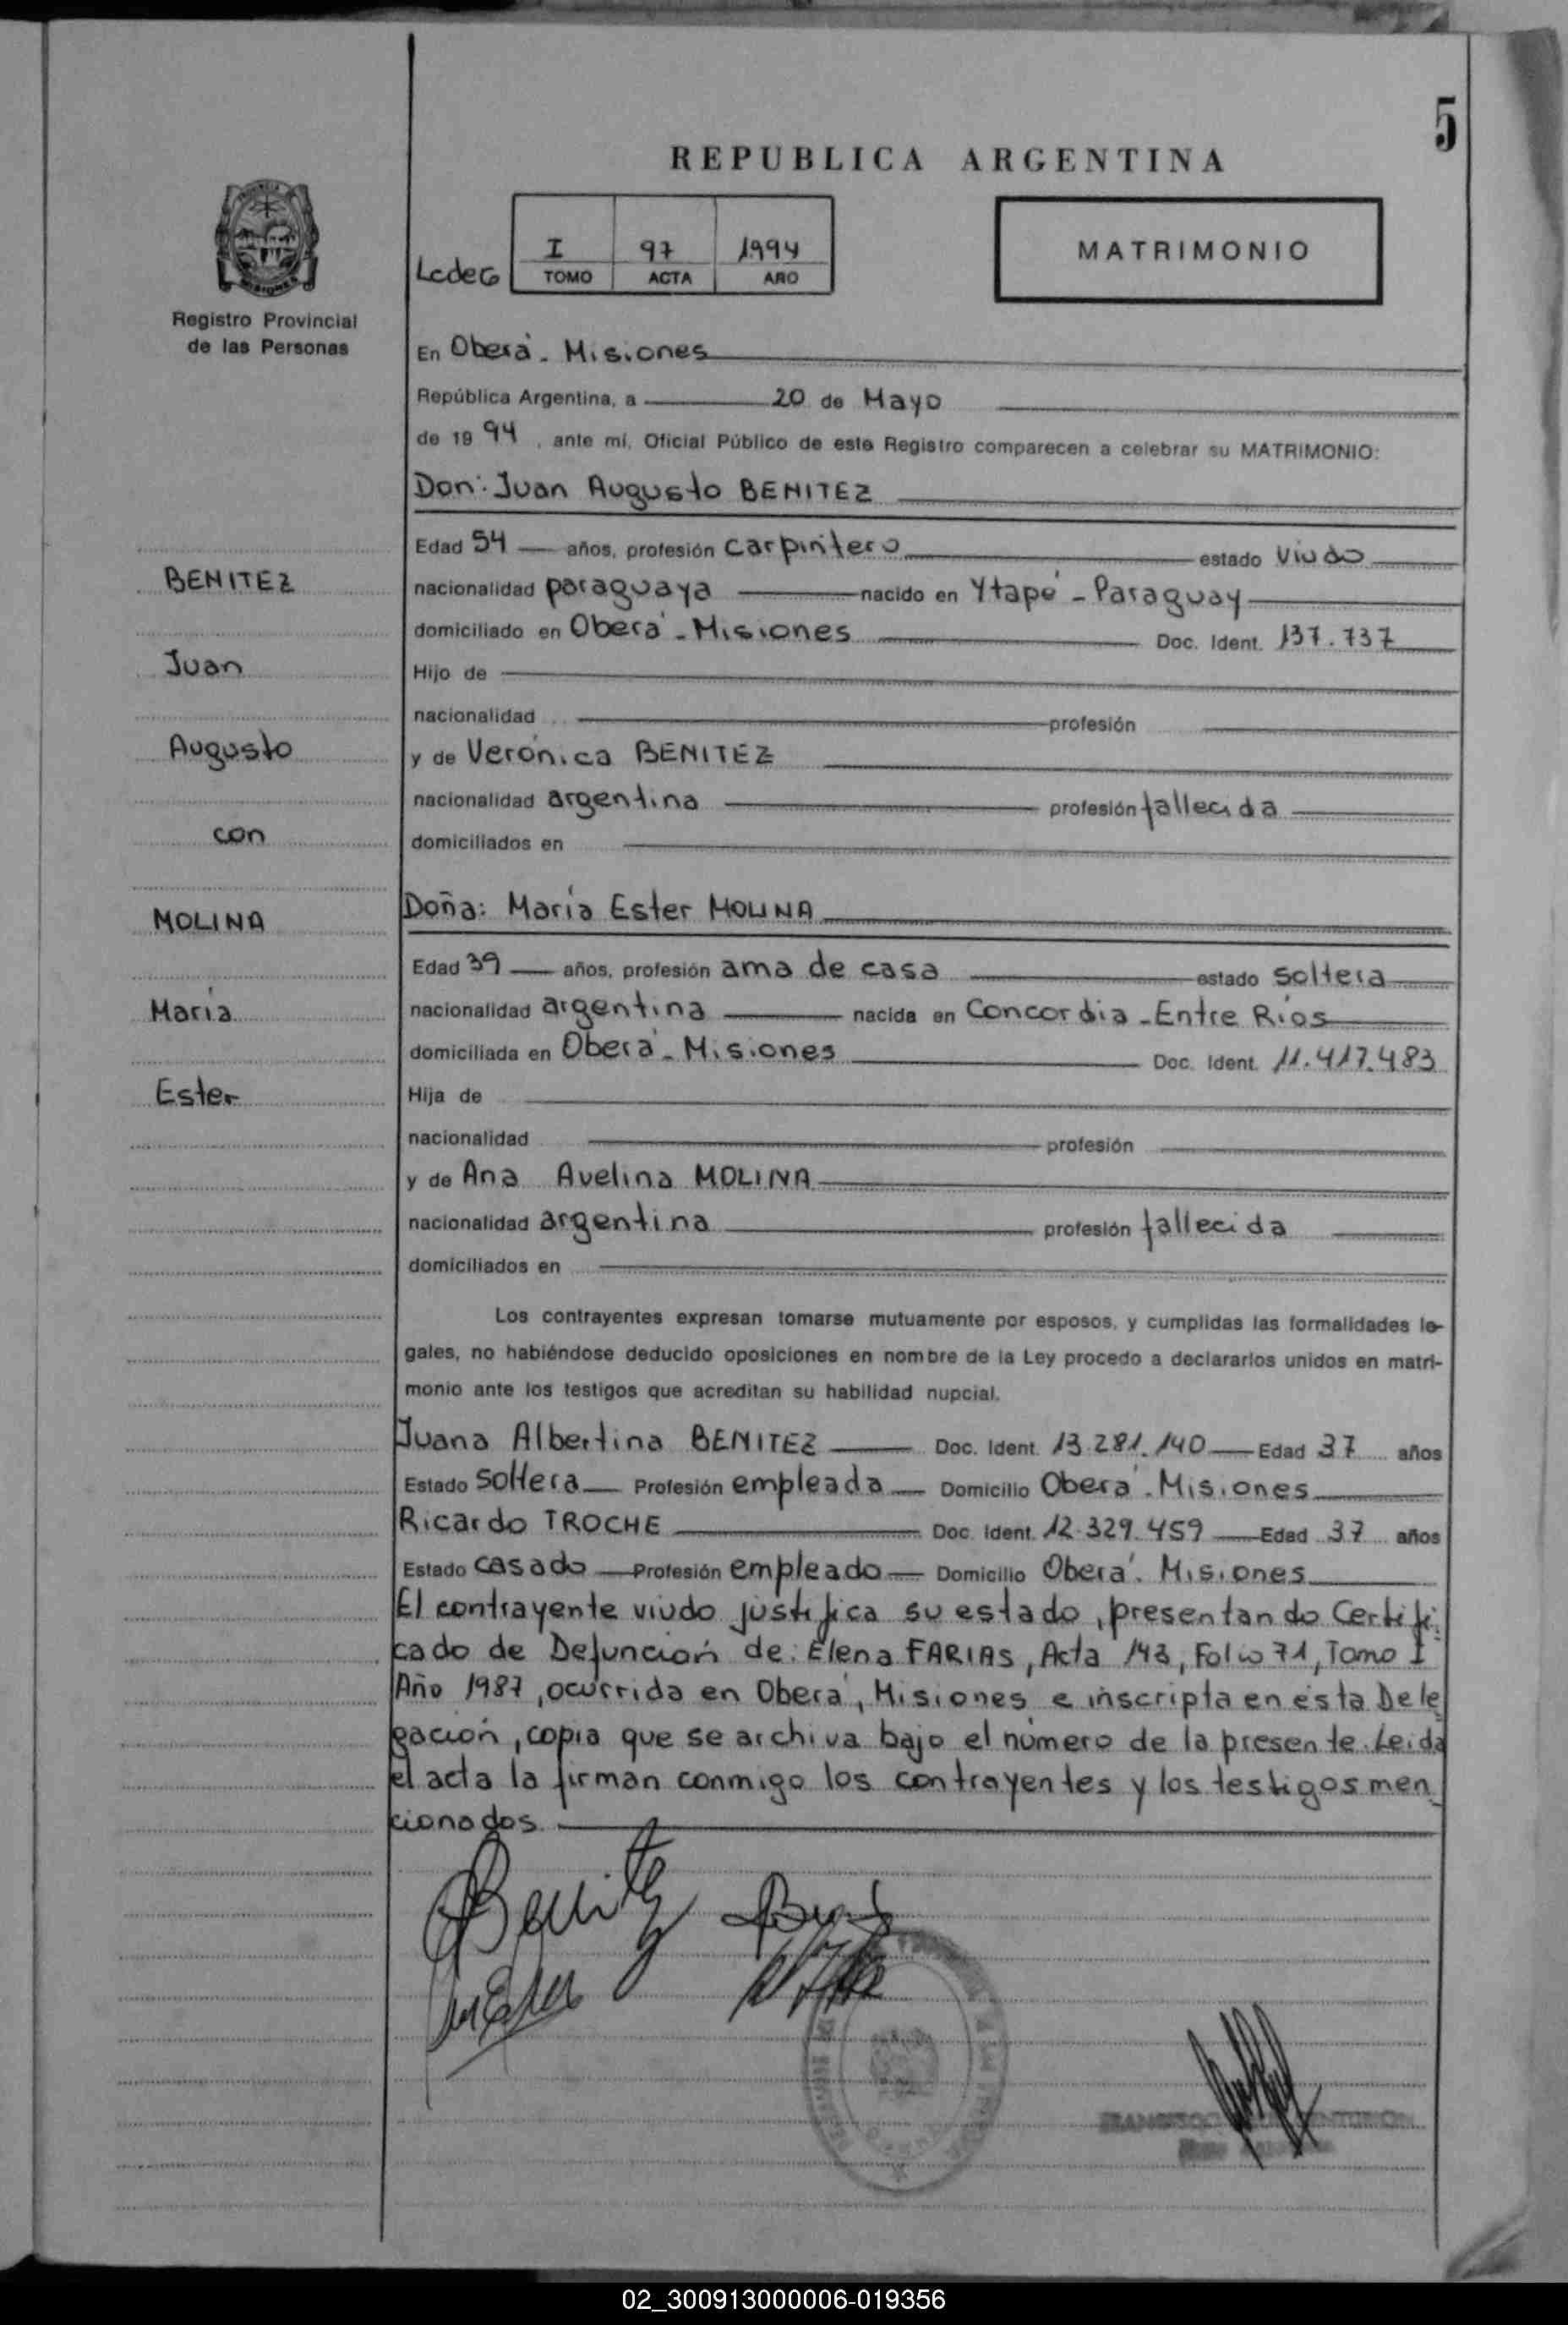 5
REPUBLICA ARGENTINA
I 97 1994
TOMO ACTA AÑO
MATRIMONIO
Registro Provincial
de las Personas
En Oberá - Misiones
República Argentina, a 20 de Mayo
de 19 94, ante mí, Oficial Público de este Registro comparecen a celebrar su MATRIMONIO:
Don: Juan Augusto BENITEZ
Edad 54 años, profesión carpintero estado viudo
BENITEZ
nacionalidad paraguaya nacido en Ytapé - Paraguay
domiciliado en Oberá - Misiones Doc. Ident. 137.737
Juan
Hijo de
nacionalidad profesión
Augusto
y de Verónica BENITEZ
nacionalidad argentina profesión fallecida
con
domiciliados en
MOLINA
Doña: María Ester MOLINA
Edad 39 años, profesión ama de casa estado soltera
María
nacionalidad argentina nacida en Concordia - Entre Ríos
domiciliada en Oberá - Misiones Doc. Ident. 11.417.483
Ester
Hija de
nacionalidad profesión
y de Ana Avelina MOLINA
nacionalidad argentina profesión fallecida
domiciliados en
Los contrayentes expresan tomarse mutuamente por esposos, y cumplidas las formalidades le-
gales, no habiéndose deducido oposiciones en nombre de la Ley procedo a declararlos unidos en matri-
monio ante los testigos que acreditan su habilidad nupcial.
Juana Albertina BENITEZ Doc. Ident. 13.281.140 Edad 37 años
Estado soltera Profesión empleada Domicilio Oberá - Misiones
Ricardo TROCHE Doc. Ident. 12.329.459 Edad 37 años
Estado casado Profesión empleado Domicilio Oberá - Misiones
El contrayente viudo justifica su estado, presentando Certifi-
cado de Defunción de: Elena FARIAS, Acta 143, Folio 71, Tomo I
Año 1987, ocurrida en Oberá, Misiones e inscripta en ésta Dele
gación, copia que se archiva bajo el número de la presente. Leida
el acta la firman conmigo los contrayentes y los testigos men-
cionados.
02_300913000006-019356